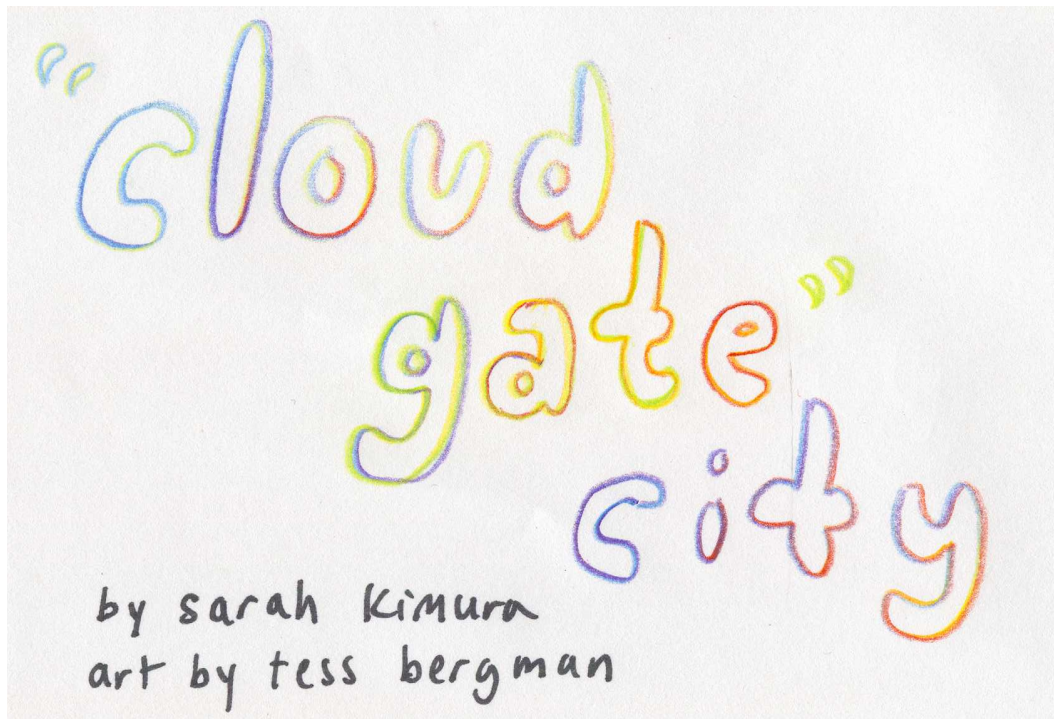 "cloud
gate"
city
by sarah kimura
art by tess bergman